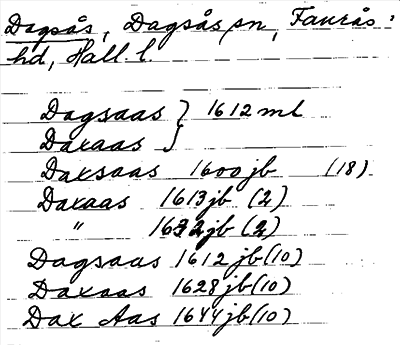 Dagsås, Dagsås sn, Faurås
hd, Hall. l.
Dagsaas } 1612 ml
Daxaas }
Daxsaas 1600 jb (18)
Daxaas 1613 jb (2)
" 1632 jb (2)
Dagsaas 1612 jb (10)
Daxaas 1628 jb (10)
Dax Aas 1644 jb (10)